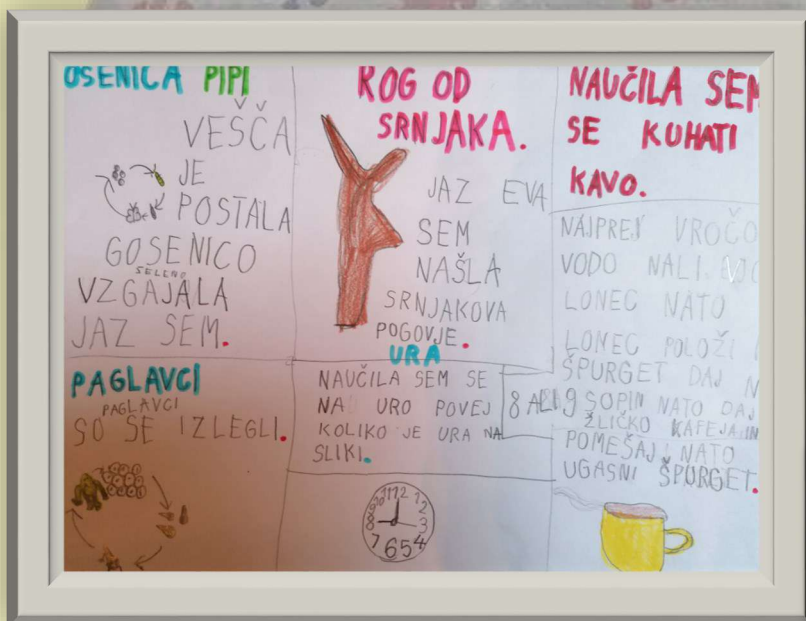 OSENICA PIPI
VEŠČA
JE
POSTALA
GOSENICO
SELENO
VZGAJALA
JAZ SEM.
PAGLAVCI
PAGLAVCI
SO SE IZLEGLI.
ROG OD
SRNJAKA.
JAZ EVA
SEM
NAŠLA
SRNJAKOVA
POGOVJE.
URA
NAUČILA SEM SE
NA URO POVEJ
KOLIKO JE URA NA
SLIKI.
8 ALI 9
11 12 1
10 2
9 3
8 4
7 6 5
NAUČILA SEM
SE KUHATI
KAVO.
NAJPREJ VROČO
VODO NALIJ
LONEC NATO
LONEC POLOŽI
ŠPURGET DAJ N
SOPIN NATO DAJ
ŽLIČKO KAFEJA IN
POMEŠAJ NATO
UGASNI ŠPURGET.